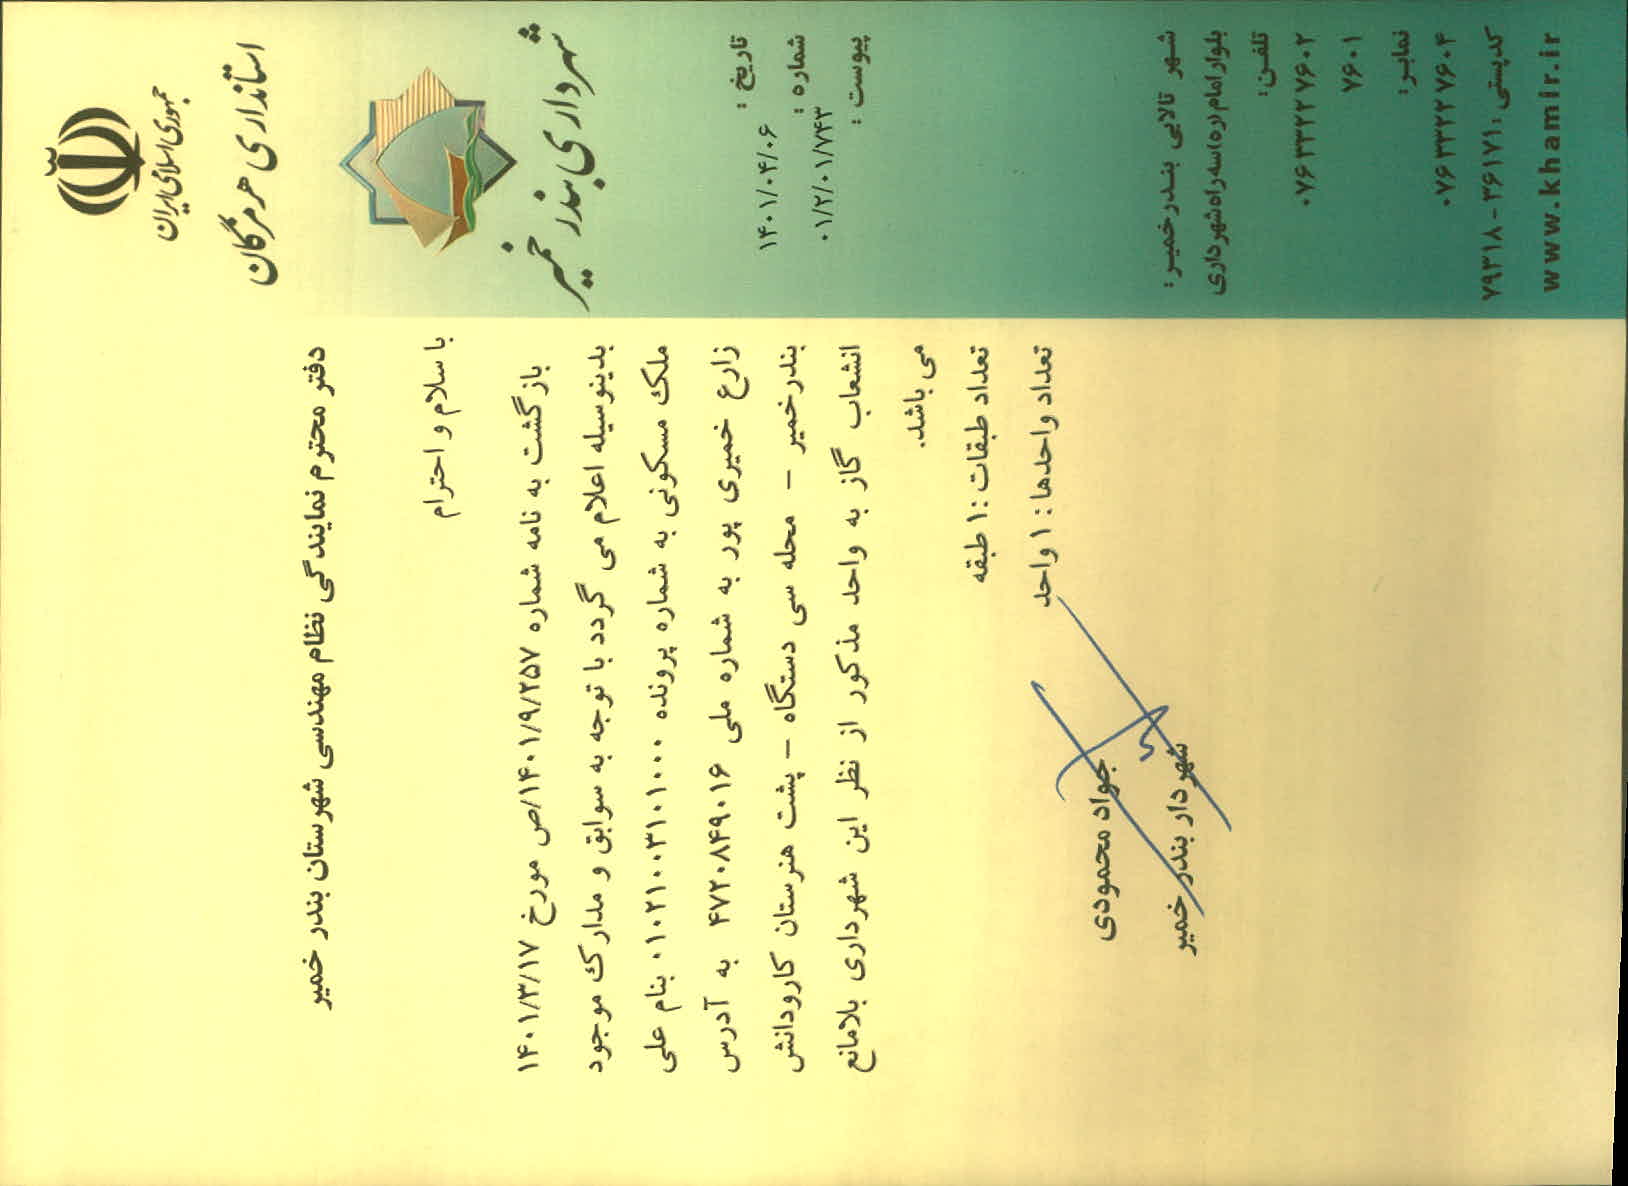 جمهوری اسلامی ایران
استانداری هرمزگان
شهرداری بندر خمیر
تاریخ : ۱۴۰۱/۰۴/۰۶
شماره : ۰۱/۲/۰۱/۷۴۳
پیوست :
دفتر محترم نمایندگی نظام مهندسی شهرستان بندر خمیر
با سلام و احترام
بازگشت به نامه شماره ۱۴۰۱/۹/۲۵۷/ص مورخ ۱۴۰۱/۳/۱۷
بدینوسیله اعلام می گردد با توجه به سوابق و مدارک موجود
ملک مسکونی به شماره پرونده ۰۱۰۲۱۰۰۳۱۰۱۰۰۰ بنام علی
زارع خمیری پور به شماره ملی ۴۷۲۰۸۴۹۰۱۶ به آدرس
بندرخمیر – محله سی دستگاه – پشت هنرستان کارودانش
انشعاب گاز به واحد مذکور از نظر این شهرداری بلامانع
می باشد.
تعداد طبقات :۱ طبقه
تعداد واحدها : ۱ واحد
جواد محمودی
شهردار بندر خمیر
شهر تالابی بندرخمیر :
بلوار امام (ره) سه راه شهرداری
تلفن:
۰۷۶۳۳۲۲۷۶۰۲
۷۶۰۱
نمابر:
۰۷۶۳۳۲۲۷۶۰۴
کدپستی: ۳۶۱۷۱-۷۹۳۱۸
www.khamir.ir